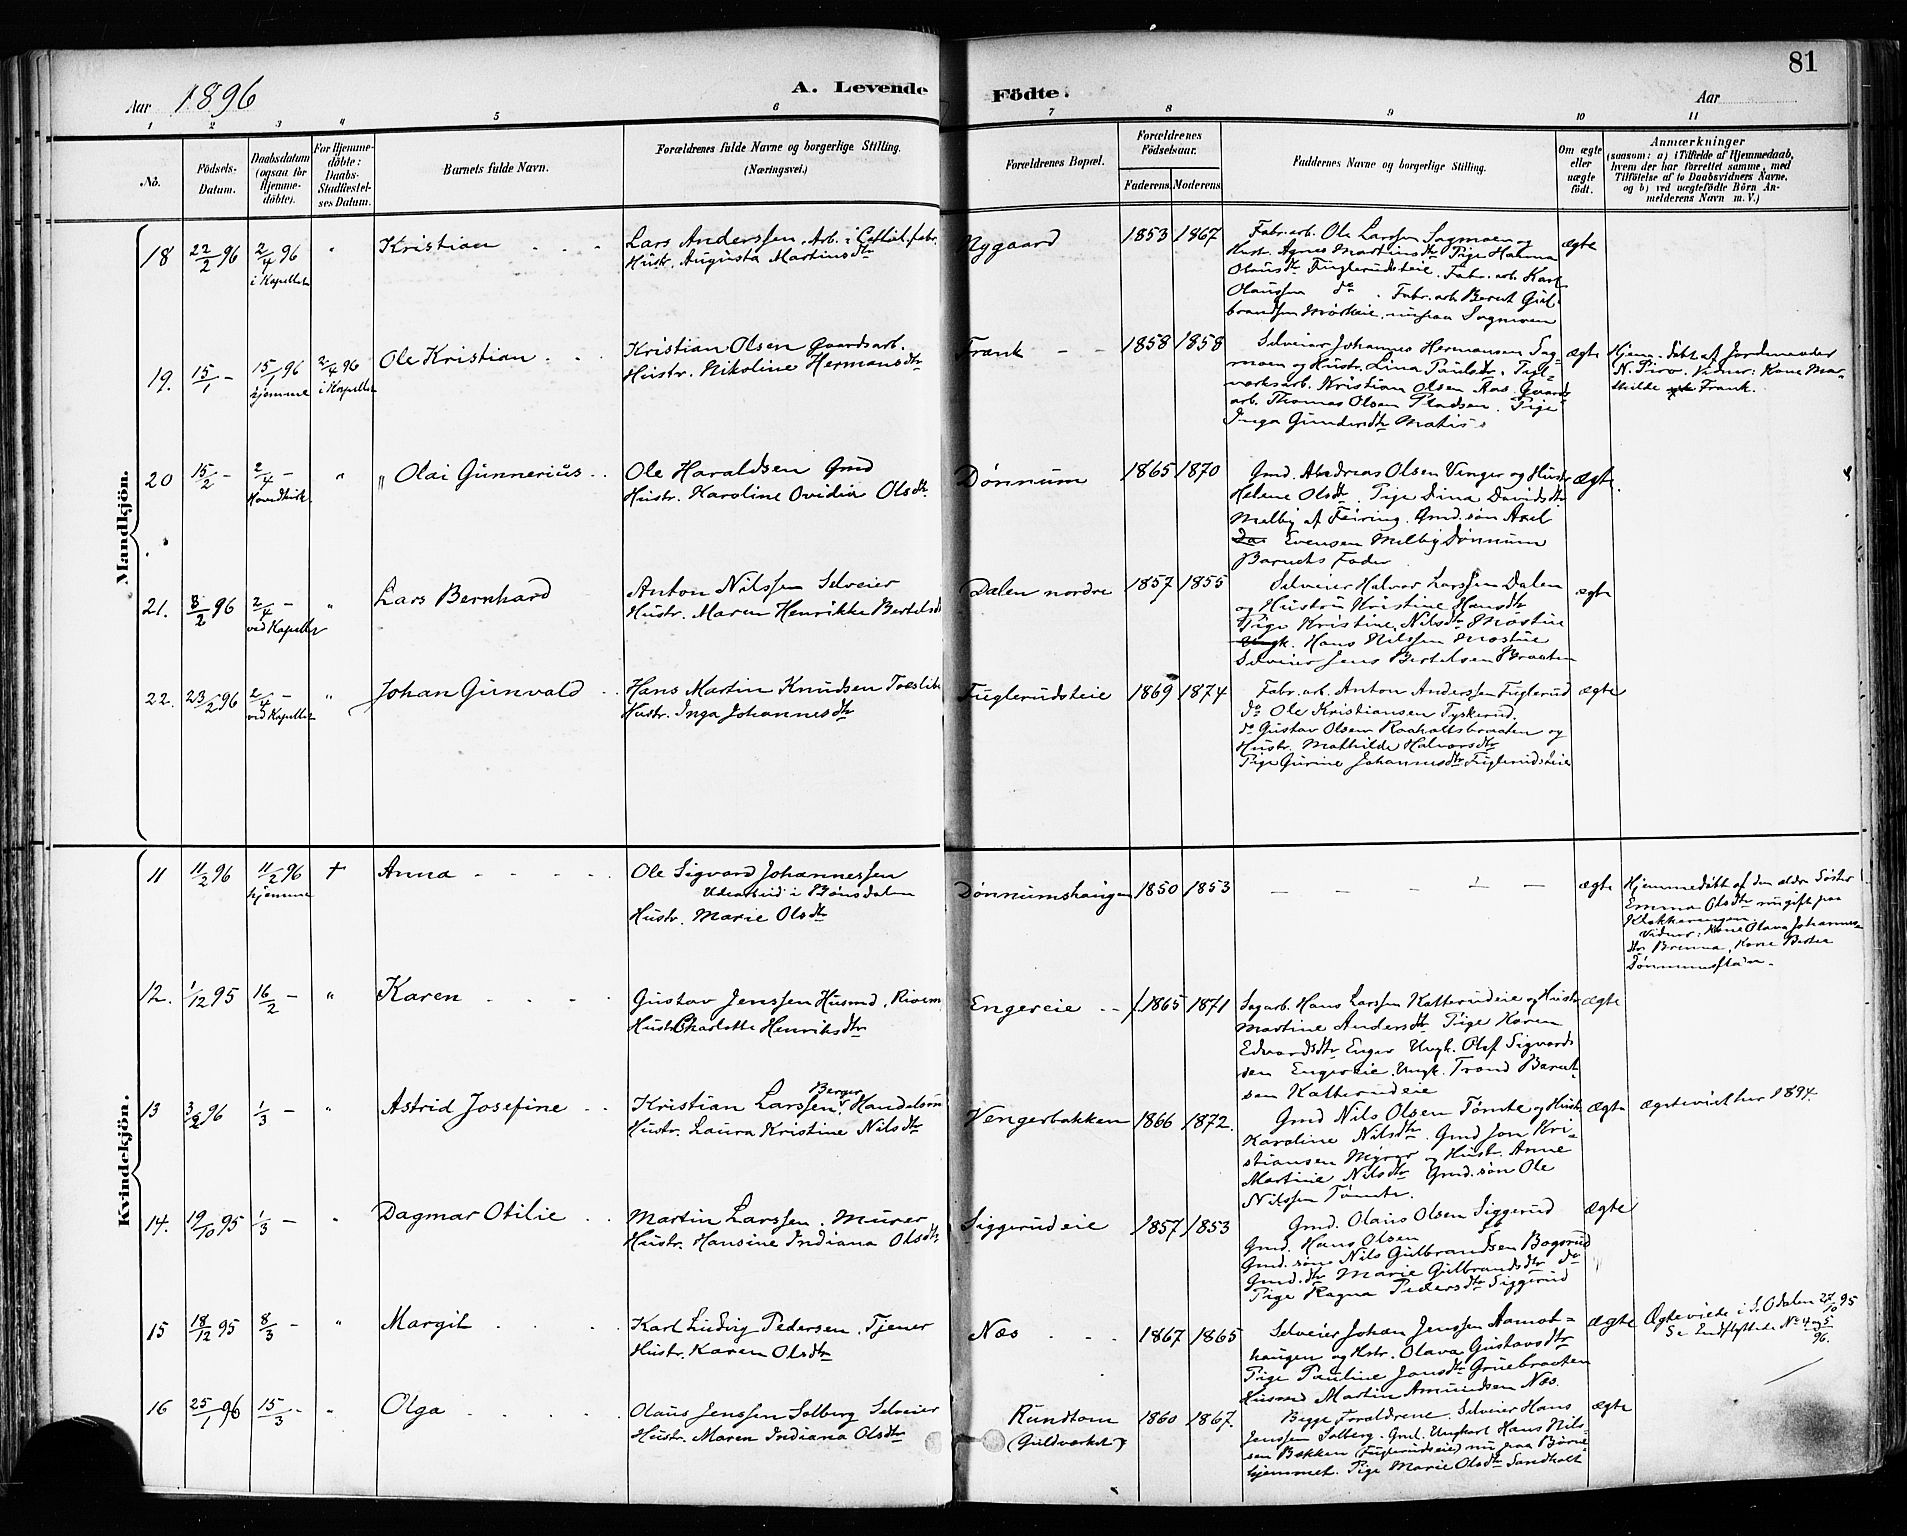 81
Aar 1896
A. Levende Födte.
Aar
1 2 3 4 5 6 7 8 9 10 11
No.
Födsels-Datum.
Daabsdatum (ogsaa for Hjemme-döbte).
For Hjemme-döbte: Daabs-Stadfæstel-ses Datum.
Barnets fulde Navn.
Forældrenes fulde Navne og borgerlige Stilling.
(Næringsvei.)
Forældrenes Bopæl.
Forældrenes Födselsaar.
Faderens. Moderens.
Faddernes Navne og borgerlige Stilling.
Om ægte eller uægte födt.
Anmærkninger
(saasom: a) i Tilfælde af Hjemmedaab,
hvem der har forrettet samme, med
Tilföielse af to Daabsvidners Navne,
og b) ved uægtefödte Börn An-
melderens Navn m. V.)
Mandkjön.
18 22/2 96 2/4 96 i Kapellet " Kristian
Lars Anderssen, Arb. i
Hustr. Augusta Martinsdtr
Nygaard 1853 1867
Fabr. arb. Ole Larssen Sagmoen og
Hust. Agnes Martinsdtr Pige Halma
Olausdtr Fuglerudseie. Fabr. arb. Karl
Olaussen do. Fabr. arb. Bernt Gul-
brandsen
ægte
19. 15/1 - 15/1 96 hjemme 2/4 96 i Kapellet Ole Kristian
Kristian Olsen Gaardsarb.
Hustr. Nikoline Hermansdtr
Frank 1858 1858
Selveier Johannes Hermansen Sag-
moen og Hustr. Lina Paulsdtr. Tegl-
verksarb. Kristian Olsen Aas. Gaards
arb. Thomas Olsen Pladsen. Pige
Inga Gundersdtr
ægte
Hjem. döbt af Jordemoder
N. Piro. Vidner: Kone Ma-
thilde Frank.
20 15/2 - 2/4 - Hovedkirk. " Olai Gunnerius
Ole Haraldsen Gmd
Hustr. Karoline Ovidia Olsdtr.
Dønnum 1865 1870
Gmd. Andreas Olsen Venger og Hustr
Helene Olsdtr. Pige Dina Davidsdtr
Melby af Feiring. Gmd. søn Axel
Evensen Melby Dønnum
Barnets Fader
ægte.
21. 3/2 96 2/4 - ved Kapellet " Lars Bernhard
Anton Nilssen Selveier
Hustr. Maren Henrikke Bertelsd
Dalen nordre 1857 1855
Selveier Halvor Larssen Dalen
og Hustru Kristine Hansdtr
Pige Kristine Nilsdtr
Ungk. Hans Nilssen
Selveier Jens Bertelsen Braaten
ægte
22. 23/2 96 2/4 - ved Kapellet " Johan Gunvald
Hans Martin Knudsen
Hustr. Inga Johannesdtr
Fuglerudseie 1869 1874
Fabr. arb. Anton Anderssen Fuglerud
do Ole Kristiansen Tyskerud.
do Gustav Olsen Raaholtsbraaten og
Hustr. Mathilde Halvorsdtr
Pige Gurine Johannesdtr Fuglerudseie
ægte
Kvindekjön.
11 11/2 96 11/2 96 hjemme + Anna
Ole Sigvard Johannessen
Hustr. Marie Olsdtr
Dønnumshaugen 1850 1853 — — — — —
ægte
Hjemmedöbt af den ældre Söster
Emma Olsdtr nu gift paa
Vidner: Kone Olava Johannes-
dtr Brenna, Kone Berta
12. 1/12 95 16/2 - " Karen
Gustav Jenssen Husmd.
Hustr. Charlotte Henriksdtr
Engereie 1865 1871
Sagarb. Hans Larssen Katterudeie og Hustr
Martine Andersdtr Pige Karen
Edvardsdtr Enger Ungk. Olaf Sigvards
sen Engereie. Ungk. Trond Bernt-
sen Katterudeie
ægte
13 3/2 96 1/3 - " Astrid Josefine
Kristian Larssen Berger Handelsm
Hustr. Laura Kristine Nilsdtr
Vengerbakken 1866 1872.
Gmd Nils Olsen Tømte og Hustr
Karoline Nilsdtr. Gmd Jon Kri-
stiansen Myrer og Hustr. Anne
Martine Nilsdtr Gmd. søn Ole
Nilssen Tømte.
ægte ægteviet her 1894.
14. 19/10 95 1/3 - " Dagmar Otilie
Martin Larssen. Murer
Hustr. Hansine Indiana Olsdtr
Siggerudeie 1857 1853
Gmd. Olaus Olsen Siggerud
Gmd. Hans Olsen do
Gmd. søn Nils Gulbrandsen Bogerud
Gmd. dtr Marie Gulbrandsdtr do
Pige Ragna Pedersdtr Siggerud
ægte
15 18/12 95 8/3 - " Margit
Karl Ludvig Pedersen. Tjener
Hustr. Karen Olsdtr
Næs 1867 1865
Selveier Johan Jenssen Aamot-
haugen og Hstr. Olava Gustavsdtr
Pige Pauline Jonsdtr Gruebraaten
Husmd Martin Amundsen Næs.
ægte
Ægteviede i S. Odalen 27/10 95
Se Indflyttede No 4 og 5
96.
16 25/1 96 15/3 - " Olga
Olaus Jenssen Solberg Selveier
Hustr. Maren Indiana Olsdtr
Rundtom (Guldverket) 1860 1867.
Begge Forældrene. Selveier Hans
Jenssen Solberg. Gml. Ungkarl Hans Nils-
sen Bakken (Fuglerudseie) nu paa Børne-
hjemmet. Pige Marie Olsdtr Sandholt
ægte